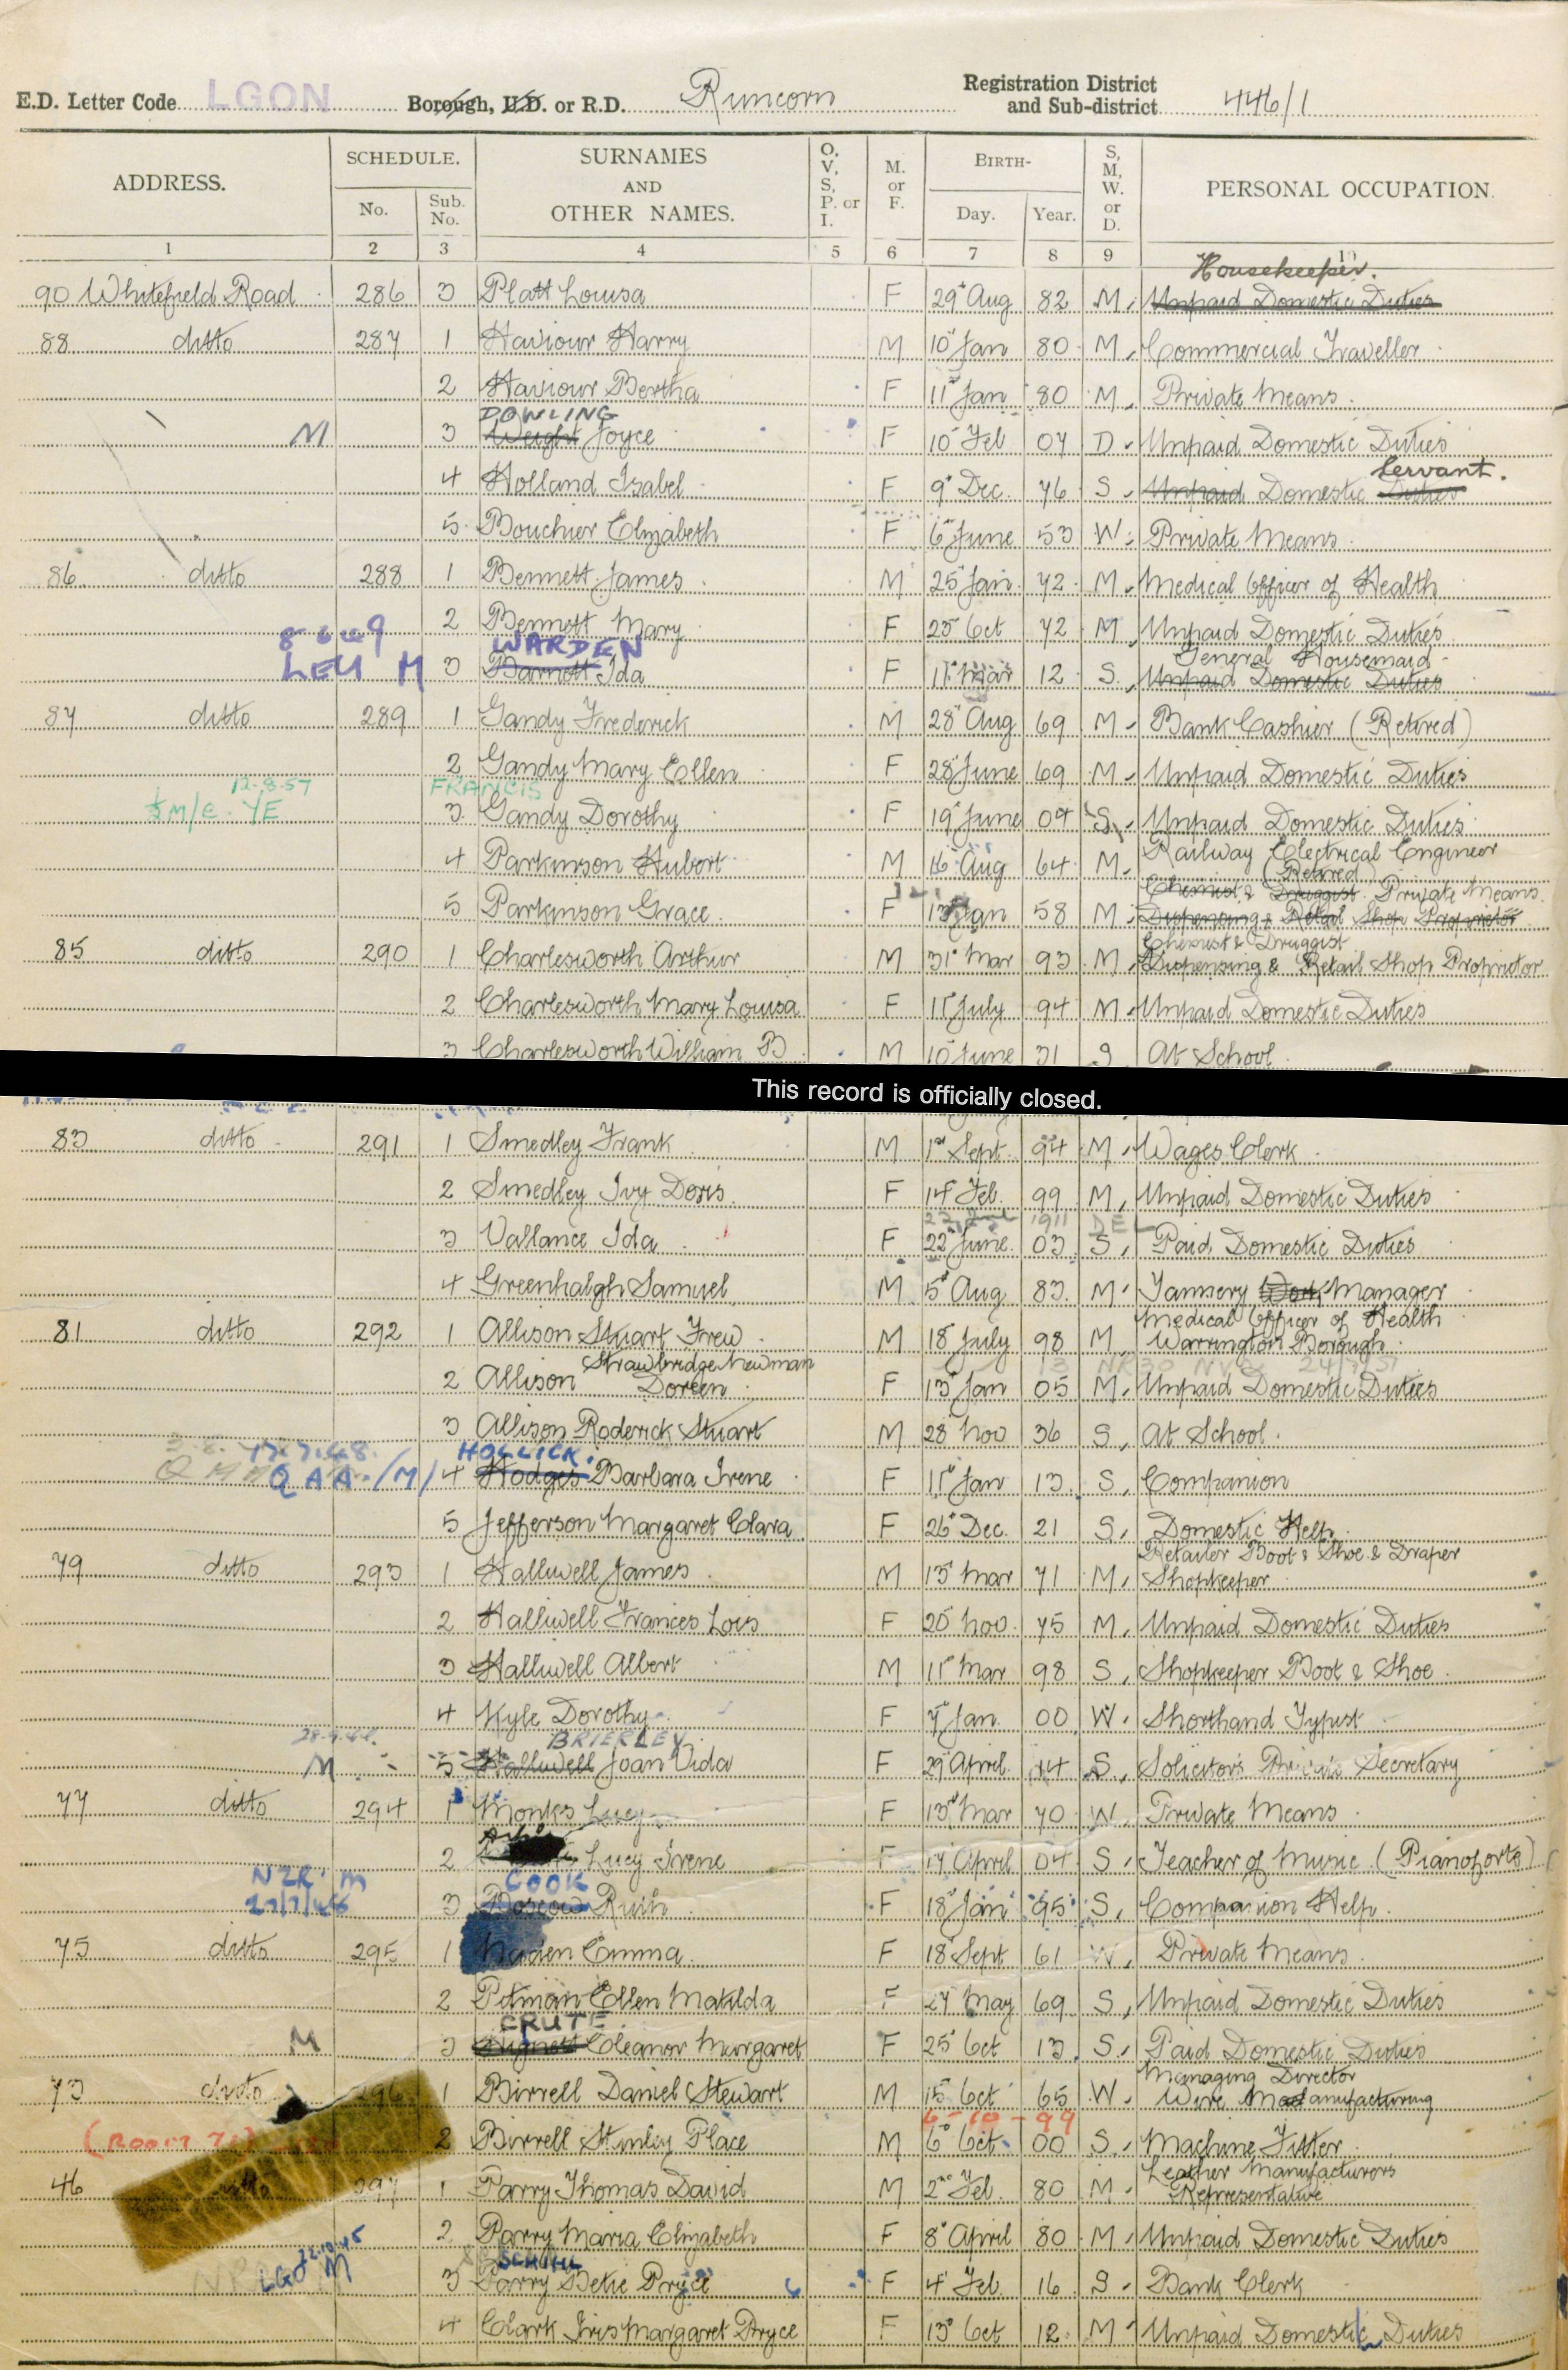 E.D. Letter Code LGON Borough, U.D. or R.D. Runcorn Registration District and Sub-district 446/1
ADDRESS. SCHEDULE. SURNAMES AND OTHER NAMES. O, V, S, P. or I. M. or F. BIRTH- S, M, W. or D. PERSONAL OCCUPATION.
No. Sub. No. Day. Year.
1 2 3 4 5 6 7 8 9 10
Housekeeper.
90 Whitefield Road 286 3 Platt Louisa F 29 Aug 82 M Unpaid Domestic Duties
88 ditto 287 1 Haviour Harry M 10 Jan 80 M Commercial Traveller
2 Haviour Bertha F 11 Jan 80 M Private Means
DOWLING
M 3 Weight Joyce F 10 Feb 07 D Unpaid Domestic Duties
Servant.
4 Holland Isabel F 9 Dec. 76 S Unpaid Domestic Duties
5 Bouchier Elizabeth F 6 June 53 W Private Means
86 ditto 288 1 Bennett James M 25 Jan 72 M Medical Officer of Health
2 Bennett Mary F 25 Oct 72 M Unpaid Domestic Duties
WARDEN General Housemaid
LEU M 3 Barnett Ida F 11 Mar 12 S Unpaid Domestic Duties
87 ditto 289 1 Gandy Frederick M 28 Aug 69 M Bank Cashier (Retired)
2 Gandy Mary Ellen F 28 June 69 M Unpaid Domestic Duties
12-8-57 FRANCIS
YE 3 Gandy Dorothy F 19 June 04 S Unpaid Domestic Duties
Railway Electrical Engineer
4 Parkinson Hubert M 16 Aug 64 M (Retired)
Chemist & Druggist Private Means
5 Parkinson Grace F 13 Jan 58 M Dispensing & Retail Shop Proprietor
Chemist & Druggist
85 ditto 290 1 Charlesworth Arthur M 31 Mar 93 M Dispensing & Retail Shop Proprietor
2 Charlesworth Mary Louisa F 11 July 94 M Unpaid Domestic Duties
3 Charlesworth William B M 10 June 31 S At School
This record is officially closed.
83 ditto 291 1 Smedley Frank M 1st Sept 94 M Wages Clerk
2 Smedley Ivy Doris F 14 Feb 99 M Unpaid Domestic Duties
1911 DEL
3 Vallance Ida F 22 June 03 S Paid Domestic Duties
4 Greenhalgh Samuel M 5 Aug 83 M Tannery Manager
Medical Officer of Health
81 ditto 292 1 Allison Stuart Frew M 18 July 98 M Warrington Borough
Strawbridge Newman
2 Allison Doreen F 13 Jan 05 M Unpaid Domestic Duties
3 Allison Roderick Stuart M 28 Nov 36 S At School
HOLLICK
QAA /M/ 4 Hodges Barbara Irene F 11 Jan 13 S Companion
5 Jefferson Margaret Clara F 26 Dec. 21 S Domestic Help
Retailer Boot & Shoe & Draper
79 ditto 293 1 Halliwell James M 13 Mar 71 M Shopkeeper
2 Halliwell Frances Lois F 25 Nov 75 M Unpaid Domestic Duties
3 Halliwell Albert M 11 Mar 98 S Shopkeeper Boot & Shoe
4 Kyle Dorothy F 7 Jan 00 W Shorthand Typist
BRIERLEY
M 5 Halliwell Joan Vida F 29 April 14 S Solicitor's Private Secretary
77 ditto 294 1 Monks Lucy F 13 Mar 70 W Private Means
2 Lucy Irene F 17 April 04 S Teacher of Music (Pianoforte)
NZR M COOK
3 Boscow Ruth F 18 Jan 95 S Companion Help
75 ditto 295 1 Emma F 18 Sept 61 W Private Means
2 Pitman Ellen Matilda F 27 May 69 S Unpaid Domestic Duties
CRUTE
M 3 Eleanor Margaret F 25 Oct 13 S Paid Domestic Duties
Managing Director
73 ditto 296 1 Birrell Daniel Stewart M 15 Oct 65 W Wire Manufacturing
6-10-99
2 Birrell Stanley Place M 6 Oct 00 S Machine Fitter
Leather Manufacturers
46 ditto 297 1 Parry Thomas David M 2nd Feb 80 M Representative
2 Parry Maria Elizabeth F 8 April 80 M Unpaid Domestic Duties
LGO M 3 Parry Betie Pryce F 4 Feb 16 S Bank Clerk
4 Clark Iris Margaret Pryce F 13 Oct 12 M Unpaid Domestic Duties